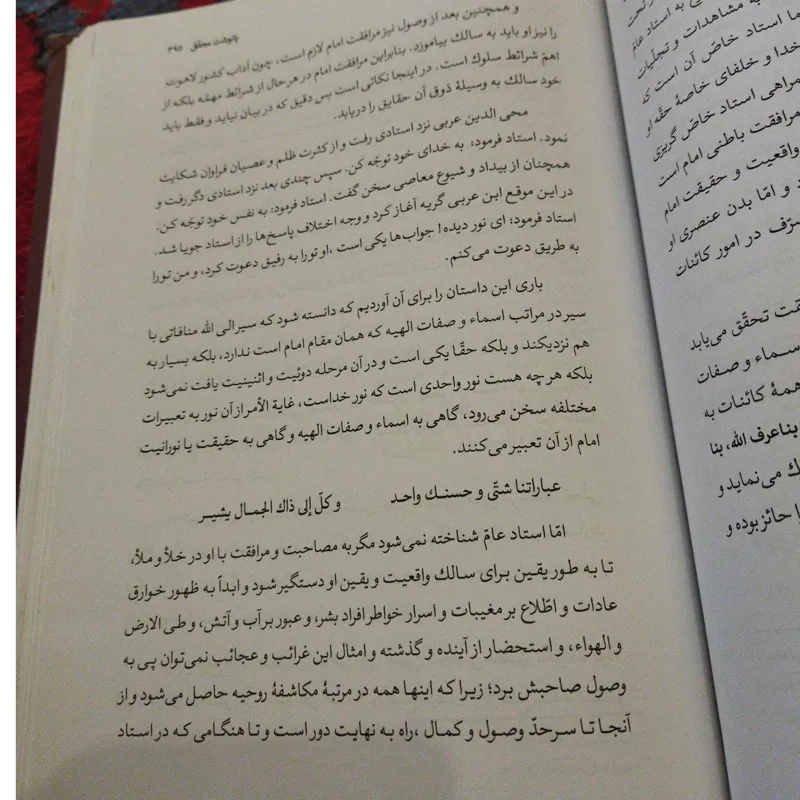 تحت
ی به استاد عامّ
به مشاهدات و تجلّیات
ما استاد خاصّ آن است که
خدا و خلفای خاصهٔ حقّه او
مراهی استاد خاصّ گریزی
مرافقت باطنی امام است
واقعیت و حقیقت امام
د و امّا بدن عنصری او
صرّف در امور کائنات
قت تحقّق می‌یابد
سماء و صفات
همهٔ کائنات به
بنا عرف الله، بنا
ك می‌نماید و
ا حائز بوده و
پانوشت محقق ۳۹۵
و همچنین بعد از وصول نیز مرافقت امام لازم است، چون آداب کشور لاهوت
را نیز او باید به سالك بیاموزد. بنابراین مرافقت امام در هر حال از شرائط مهمّه بلکه از
اهمّ شرائط سلوك است. در اینجا نکاتی است بس دقیق که در بیان نیاید و فقط باید
خود سالك به وسیلهٔ ذوق آن حقایق را دریابد.
محی الدین عربی نزد استادی رفت و از کثرت ظلم و عصیان فراوان شکایت
نمود. استاد فرمود: به خدای خود توجّه کن. سپس چندی بعد نزد استادی دگر رفت و
همچنان از بیداد و شیوع معاصی سخن گفت. استاد فرمود: به نفس خود توجّه کن.
در این موقع ابن عربی گریه آغاز کرد و وجه اختلاف پاسخ‌ها را از استاد جویا شد.
استاد فرمود: ای نور دیده! جواب‌ها یکی است، او تو را به رفیق دعوت کرد، و من تو را
به طریق دعوت می‌کنم.
باری این داستان را برای آن آوردیم که دانسته شود که سیر الی الله منافاتی با
سیر در مراتب اسماء و صفات الهیه که همان مقام امام است ندارد، بلکه بسیار به
هم نزدیکند و بلکه حقّا یکی است و در آن مرحله دوئیت و اثنینیت یافت نمی‌شود
بلکه هر چه هست نور واحدی است که نور خداست، غایة الأمر از آن نور به تعبیرات
مختلفه سخن می‌رود، گاهی به اسماء و صفات الهیه و گاهی به حقیقت یا نورانیت
امام از آن تعبیر می‌کنند.
عباراتنا شتّی و حسنك واحد و کلّ إلی ذاك الجمال یشیر
امّا استاد عامّ شناخته نمی‌شود مگر به مصاحبت و مرافقت با او در خلأ و ملأ،
تا به طور یقین برای سالك واقعیت و یقین او دستگیر شود و ابداً به ظهور خوارق
عادات و اطّلاع بر مغیبات و اسرار خواطر افراد بشر، و عبور بر آب و آتش، و طی الارض
و الهواء، و استحضار از آینده و گذشته و امثال این غرائب و عجائب نمی‌توان پی به
وصول صاحبش برد؛ زیرا که اینها همه در مرتبهٔ مکاشفهٔ روحیه حاصل می‌شود و از
آنجا تا سرحدّ وصول و کمال، راه به نهایت دور است و تا هنگامی که در استاد